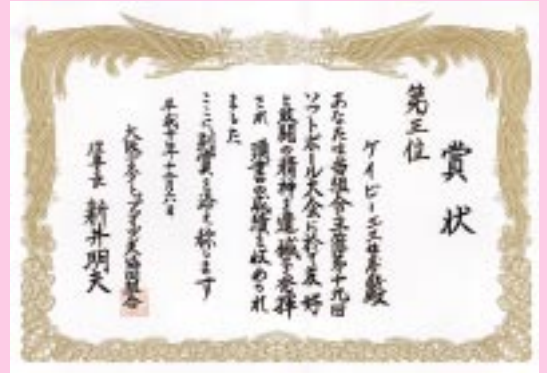 賞状
第三位
ケイピーエ工業殿
あなたは当組合主催第十九回
ソフトボール大会に於て友好
と敢闘の精神を遺憾なく発揮
され 頭書の成績を収められ
ました
ここに副賞を添え称します
平成十年十二月六日
大阪
理事長 新井明夫